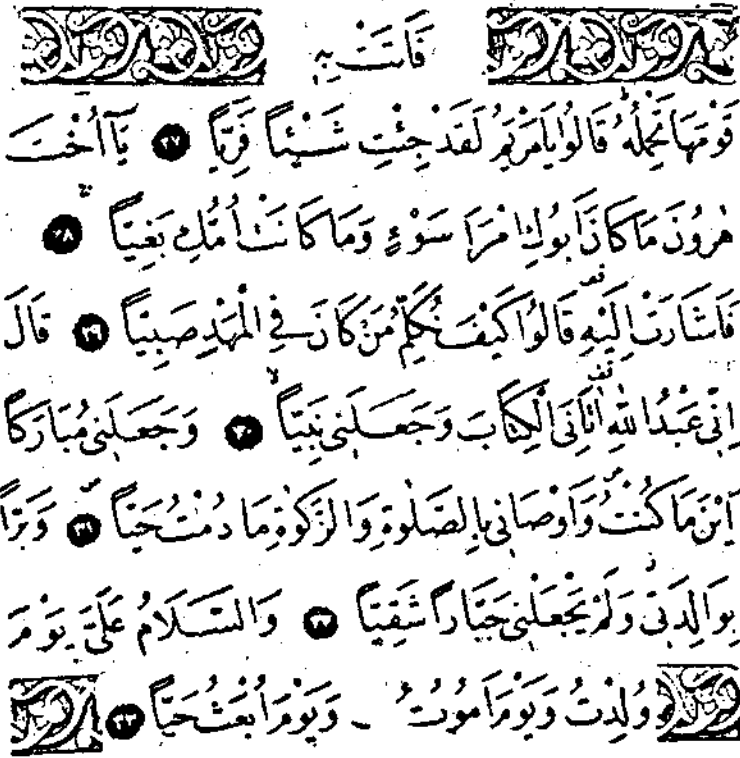 فَاَتَتْ بِهٖ
قَوْمَهَا تَحْمِلُهُۜ قَالُوا يَامَرْيَمُ لَقَدْ جِئْتِ شَيْـٔاً فَرِيّاً ٢٧ يَٓا اُخْتَ
هٰرُونَ مَا كَانَ اَبُوكِ امْرَاَ سَوْءٍ وَمَا كَانَتْ اُمُّكِ بَغِيّاًۚ ٢٨
فَاَشَارَتْ اِلَيْهِ قَالُوا كَيْفَ نُكَلِّمُ مَنْ كَانَ فِي الْمَهْدِ صَبِيّاً ٢٩ قَالَ
اِنّٖي عَبْدُ اللّٰهِ اٰتَانِيَ الْكِتَابَ وَجَعَلَنٖي نَبِيّاًۙ ٣٠ وَجَعَلَنٖي مُبَارَكاً
اَيْنَ مَا كُنْتُ وَاَوْصَانٖي بِالصَّلٰوةِ وَالزَّكٰوةِ مَا دُمْتُ حَيّاًۖ ٣١ وَبَرّاً
بِوَالِدَتٖي وَلَمْ يَجْعَلْنٖي جَبَّاراً شَقِيّاً ٣٢ وَالسَّلَامُ عَلَيَّ يَوْمَ
وُلِدْتُ وَيَوْمَ اَمُوتُ وَيَوْمَ اُبْعَثُ حَيّاً ٣٣